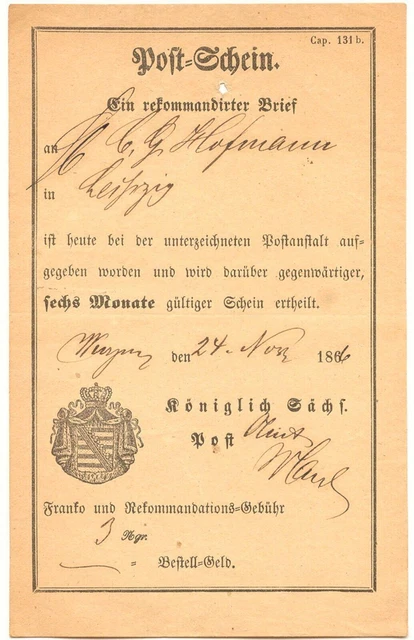 Cap. 131 b.
Post-Schein.
Ein rekommandirter Brief
an H C. G. Hofmann
in Leipzig
ist heute bei der unterzeichneten Postanstalt auf-
gegeben worden und wird darüber gegenwärtiger,
sechs Monate gültiger Schein ertheilt.
Wurzen den 24. Nov 1866
Königlich Sächs.
Post Amt
Franko und Rekommandations-Gebühr
3 Ngr.
— = Bestell-Geld.